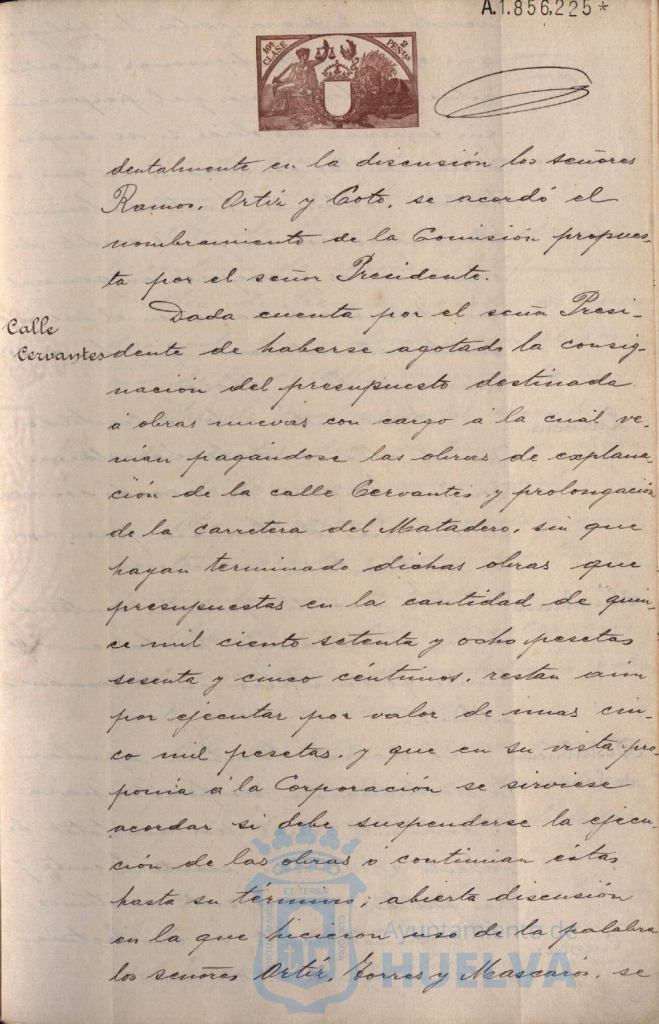 A.1.856.225*
10ª CLASE
2 PESTAS
dentalmente en la discusión los señores
Ramos, Ortíz y Coto, se acordó el
nombramiento de la Comisión propues-
ta por el señor Presidente.
Calle
Cervantes
Dada cuenta por el señor Presi-
dente de haberse agotado la consig-
nación del presupuesto destinada
á obras nuevas con cargo á la cual ve-
nían pagándose las obras de explana-
ción de la calle Cervantes y prolongación
de la carretera del Matadero, sin que
hayan terminado dichas obras que
presupuestas en la cantidad de quin-
ce mil ciento setenta y ocho pesetas
sesenta y cinco céntimos, restan aún
por ejecutar por valor de unas cin-
co mil pesetas, y que en su vista pro-
ponía á la Corporación se sirviese
acordar si debe suspenderse la ejecu-
ción de las obras ó continúan éstas
hasta su término; abierta discusión
en la que hicieron uso de la palabra
los señores Ortíz, Torres y Mascarós, se
Ayuntamiento de
HUELVA